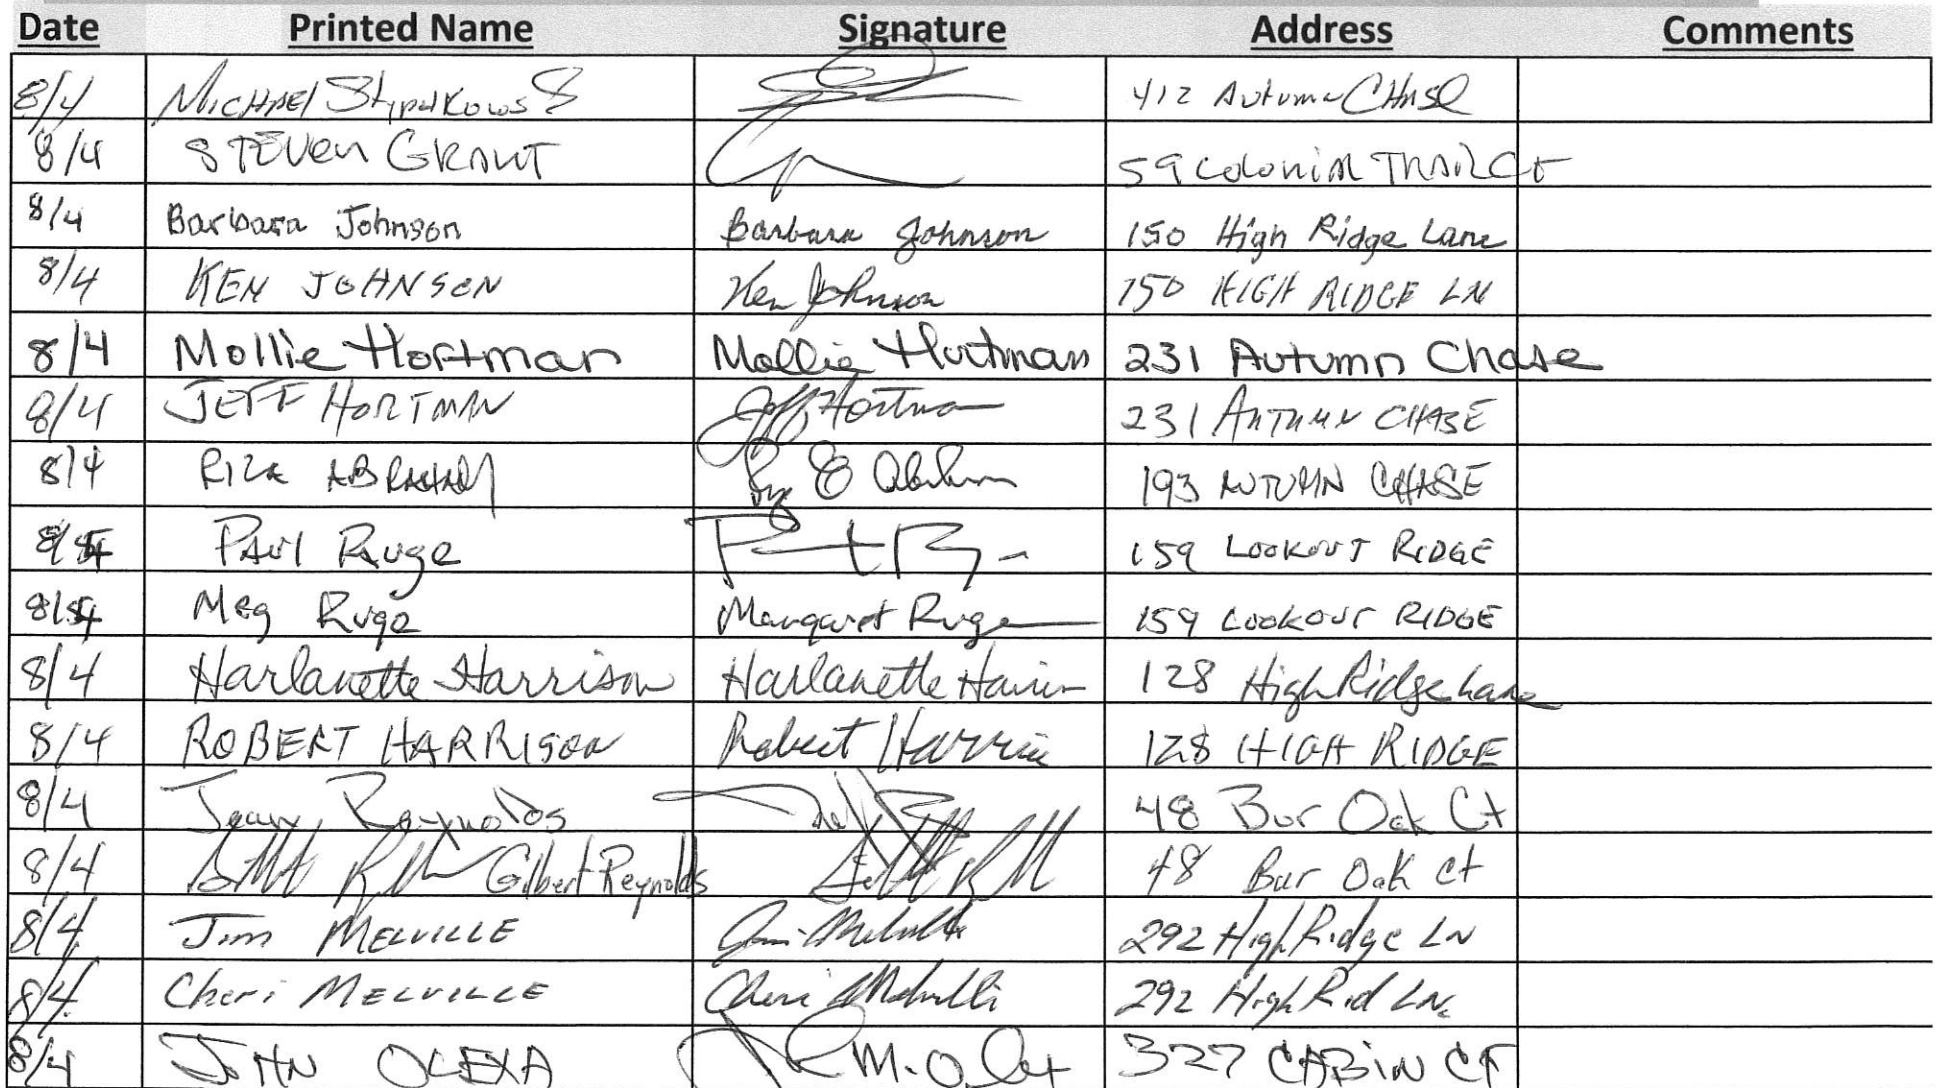 Date Printed Name Signature Address Comments
8/4 MICHAEL 412 Autumn CHASE
8/4 STEVEN GRANT 59 Colonial TRAIL Ct
8/4 Barbara Johnson Barbara Johnson 150 High Ridge Lane
8/4 KEN JOHNSON Ken Johnson 150 HIGH RIDGE LN
8/4 Mollie Hortman Mollie Hortman 231 Autumn Chase
8/4 JEFF HORTMAN Jeff Hortman 231 AUTUMN CHASE
8/4 ABRAHAM 193 AUTUMN CHASE
8/4 PAUl Ruge 159 LOOKOUT RIDGE
8/4 Meg Ruge Margaret Ruge 159 LOOKOUT RIDGE
8/4 Harlanette Harrison Harlanette Harrison 128 High Ridge Lane
8/4 ROBERT HARRISON Robert Harrison 128 HIGH RIDGE
8/4 Reynolds 48 Bur Oak Ct
8/4 Gilbert Reynolds 48 Bur Oak Ct
8/4 Jim MELVILLE Jim Melville 292 High Ridge LN
8/4 Cheri MELVILLE Cheri Melville 292 High Rid LN.
8/4 JOHN OLEXA 327 CABIN CT